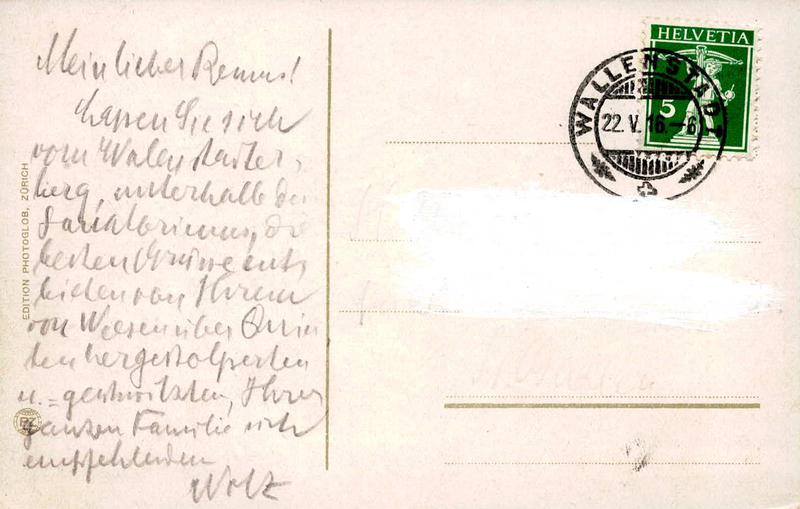 Mein lieber Remus!
Lassen Sie sich
vom Walenstadter-
berg, unterhalb des
Sanatoriums, die
besten Grüsse ent-
bieten von Ihrem
von Weesen über Quin
ten hergestolperten
u. = geschwitzten, Ihrer
ganzen Familie sich
empfehlenden
EDITION PHOTOGLOB, ZÜRICH
PZ
HELVETIA
5
WALLENSTADT
22.V.16.–6